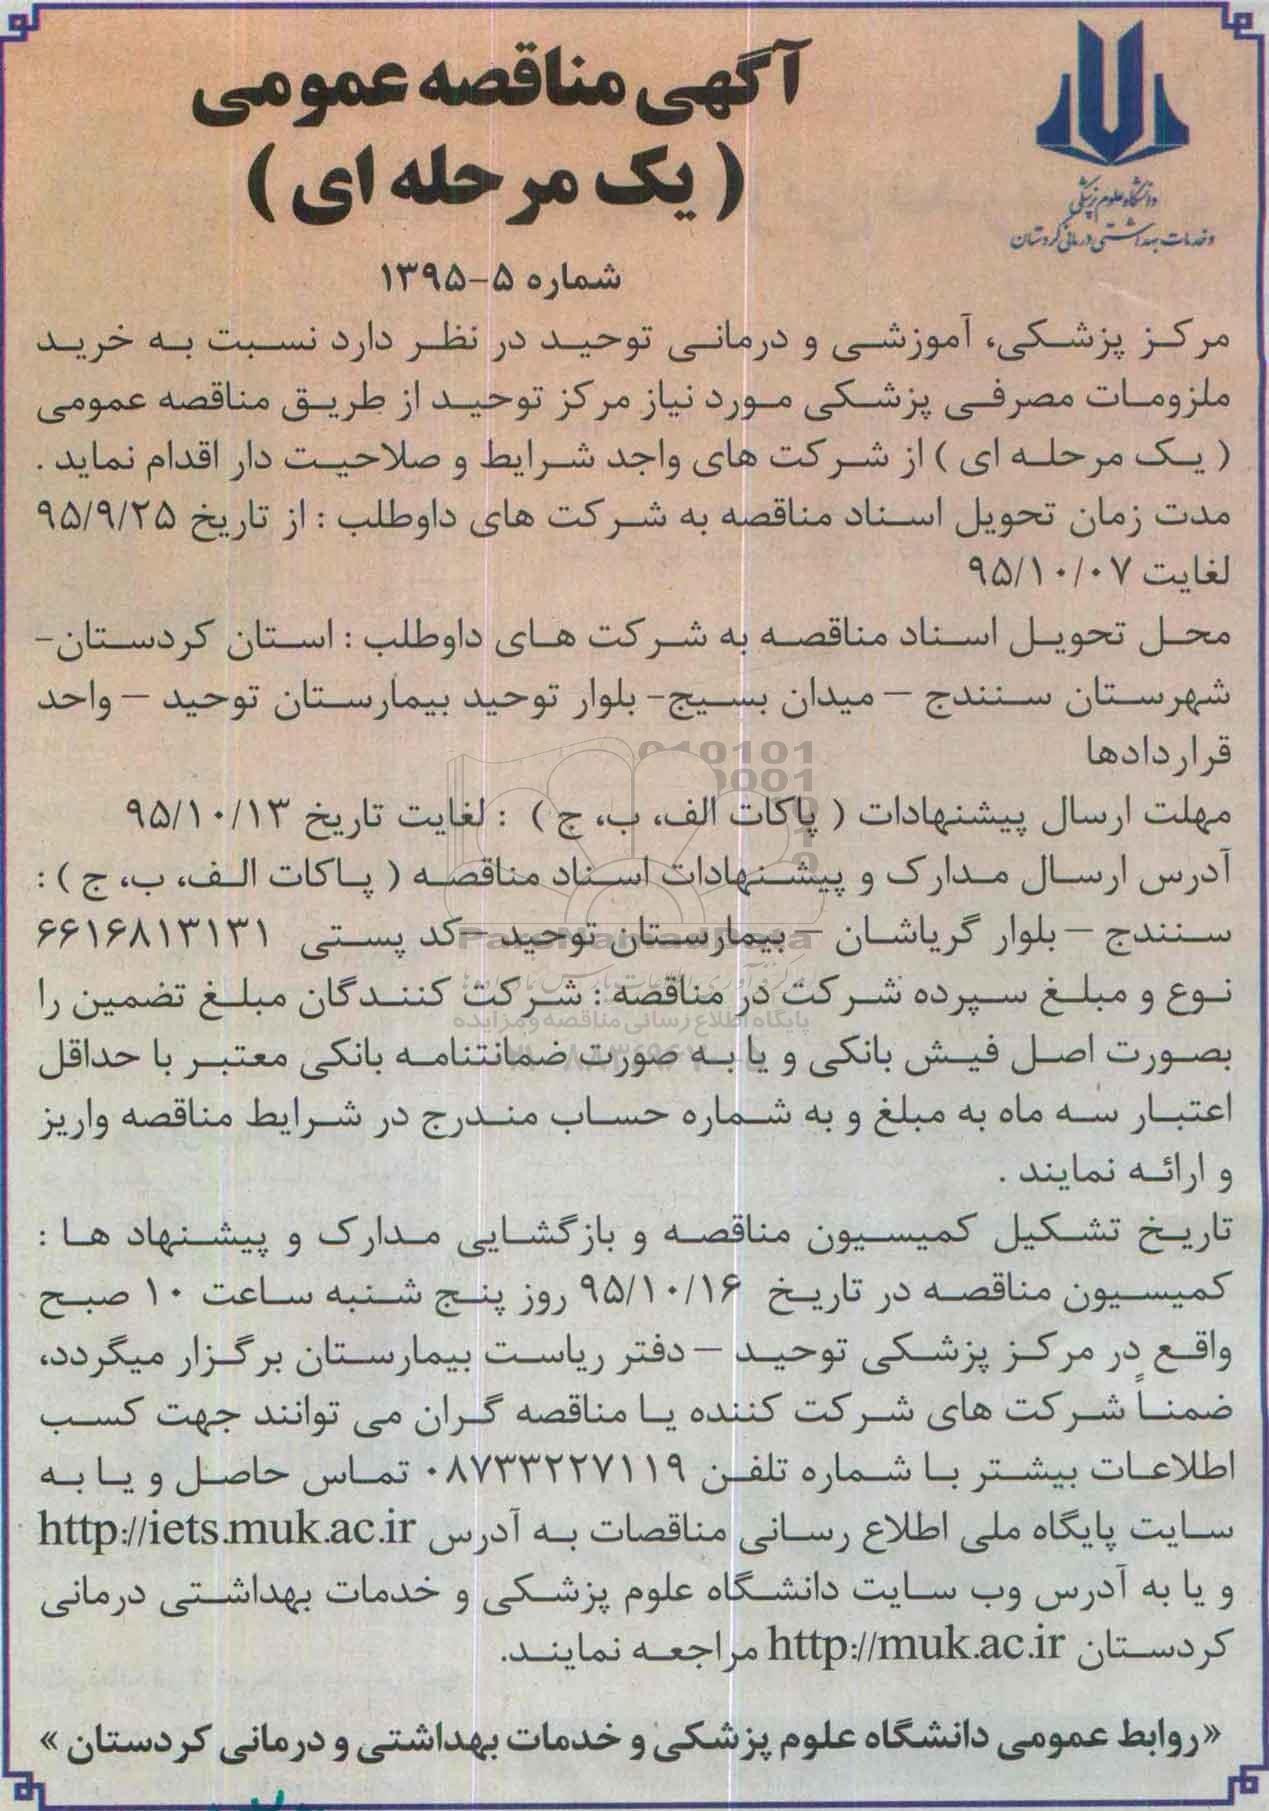 آگهی مناقصه عمومی
( یک مرحله ای )
دانشگاه علوم پزشکی
و خدمات بهداشتی درمانی کردستان
شماره ۵-۱۳۹۵
مرکز پزشکی، آموزشی و درمانی توحید در نظر دارد نسبت به خرید
ملزومات مصرفی پزشکی مورد نیاز مرکز توحید از طریق مناقصه عمومی
( یک مرحله ای ) از شرکت های واجد شرایط و صلاحیت دار اقدام نماید .
مدت زمان تحویل اسناد مناقصه به شرکت های داوطلب : از تاریخ ۹۵/۹/۲۵
لغایت ۹۵/۱۰/۰۷
محل تحویل اسناد مناقصه به شرکت های داوطلب : استان کردستان-
شهرستان سنندج – میدان بسیج- بلوار توحید بیمارستان توحید – واحد
قراردادها
مهلت ارسال پیشنهادات ( پاکات الف، ب، ج ) : لغایت تاریخ ۹۵/۱۰/۱۳
آدرس ارسال مدارک و پیشنهادات اسناد مناقصه ( پاکات الف، ب، ج ) :
سنندج – بلوار گریاشان – بیمارستان توحید –کد پستی ۶۶۱۶۸۱۳۱۳۱
نوع و مبلغ سپرده شرکت در مناقصه : شرکت کنندگان مبلغ تضمین را
بصورت اصل فیش بانکی و یا به صورت ضمانتنامه بانکی معتبر با حداقل
اعتبار سه ماه به مبلغ و به شماره حساب مندرج در شرایط مناقصه واریز
و ارائه نمایند .
تاریخ تشکیل کمیسیون مناقصه و بازگشایی مدارک و پیشنهاد ها :
کمیسیون مناقصه در تاریخ ۹۵/۱۰/۱۶ روز پنج شنبه ساعت ۱۰ صبح
واقع در مرکز پزشکی توحید – دفتر ریاست بیمارستان برگزار میگردد،
ضمناً شرکت های شرکت کننده یا مناقصه گران می توانند جهت کسب
اطلاعات بیشتر با شماره تلفن ۰۸۷۳۳۲۲۷۱۱۹ تماس حاصل و یا به
سایت پایگاه ملی اطلاع رسانی مناقصات به آدرس http://iets.muk.ac.ir
و یا به آدرس وب سایت دانشگاه علوم پزشکی و خدمات بهداشتی درمانی
کردستان http://muk.ac.ir مراجعه نمایند.
«روابط عمومی دانشگاه علوم پزشکی و خدمات بهداشتی و درمانی کردستان »
پایگاه اطلاع رسانی مناقصه و مزایده